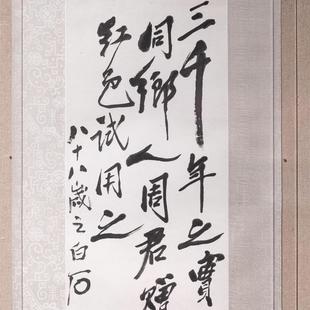 三千年之寶
同鄉人周君贈
紅色試用之
八十八歲之白石